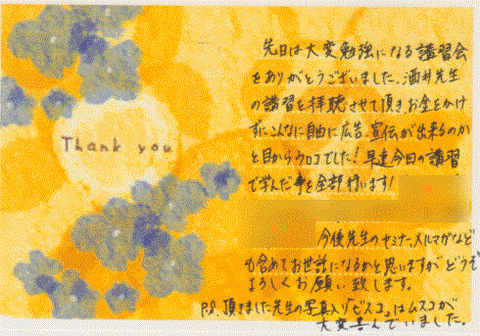 Thank you
先日は大変勉強になる講習会
をありがとうございました。酒井先生
の講習を拝聴させて頂き、お金をかけ
ずにこんなに自由に広告、宣伝が出来るのか
と目からウロコでした！早速今日の講習
で学んだ事を全部行います！
今後先生のセミナー、メルマガなど
も含めてお世話になるかと思いますがどうぞ
よろしくお願い致します。
P.S. 頂きました先生の写真入り「ビスコ」はムスコが
大変喜んでいました。